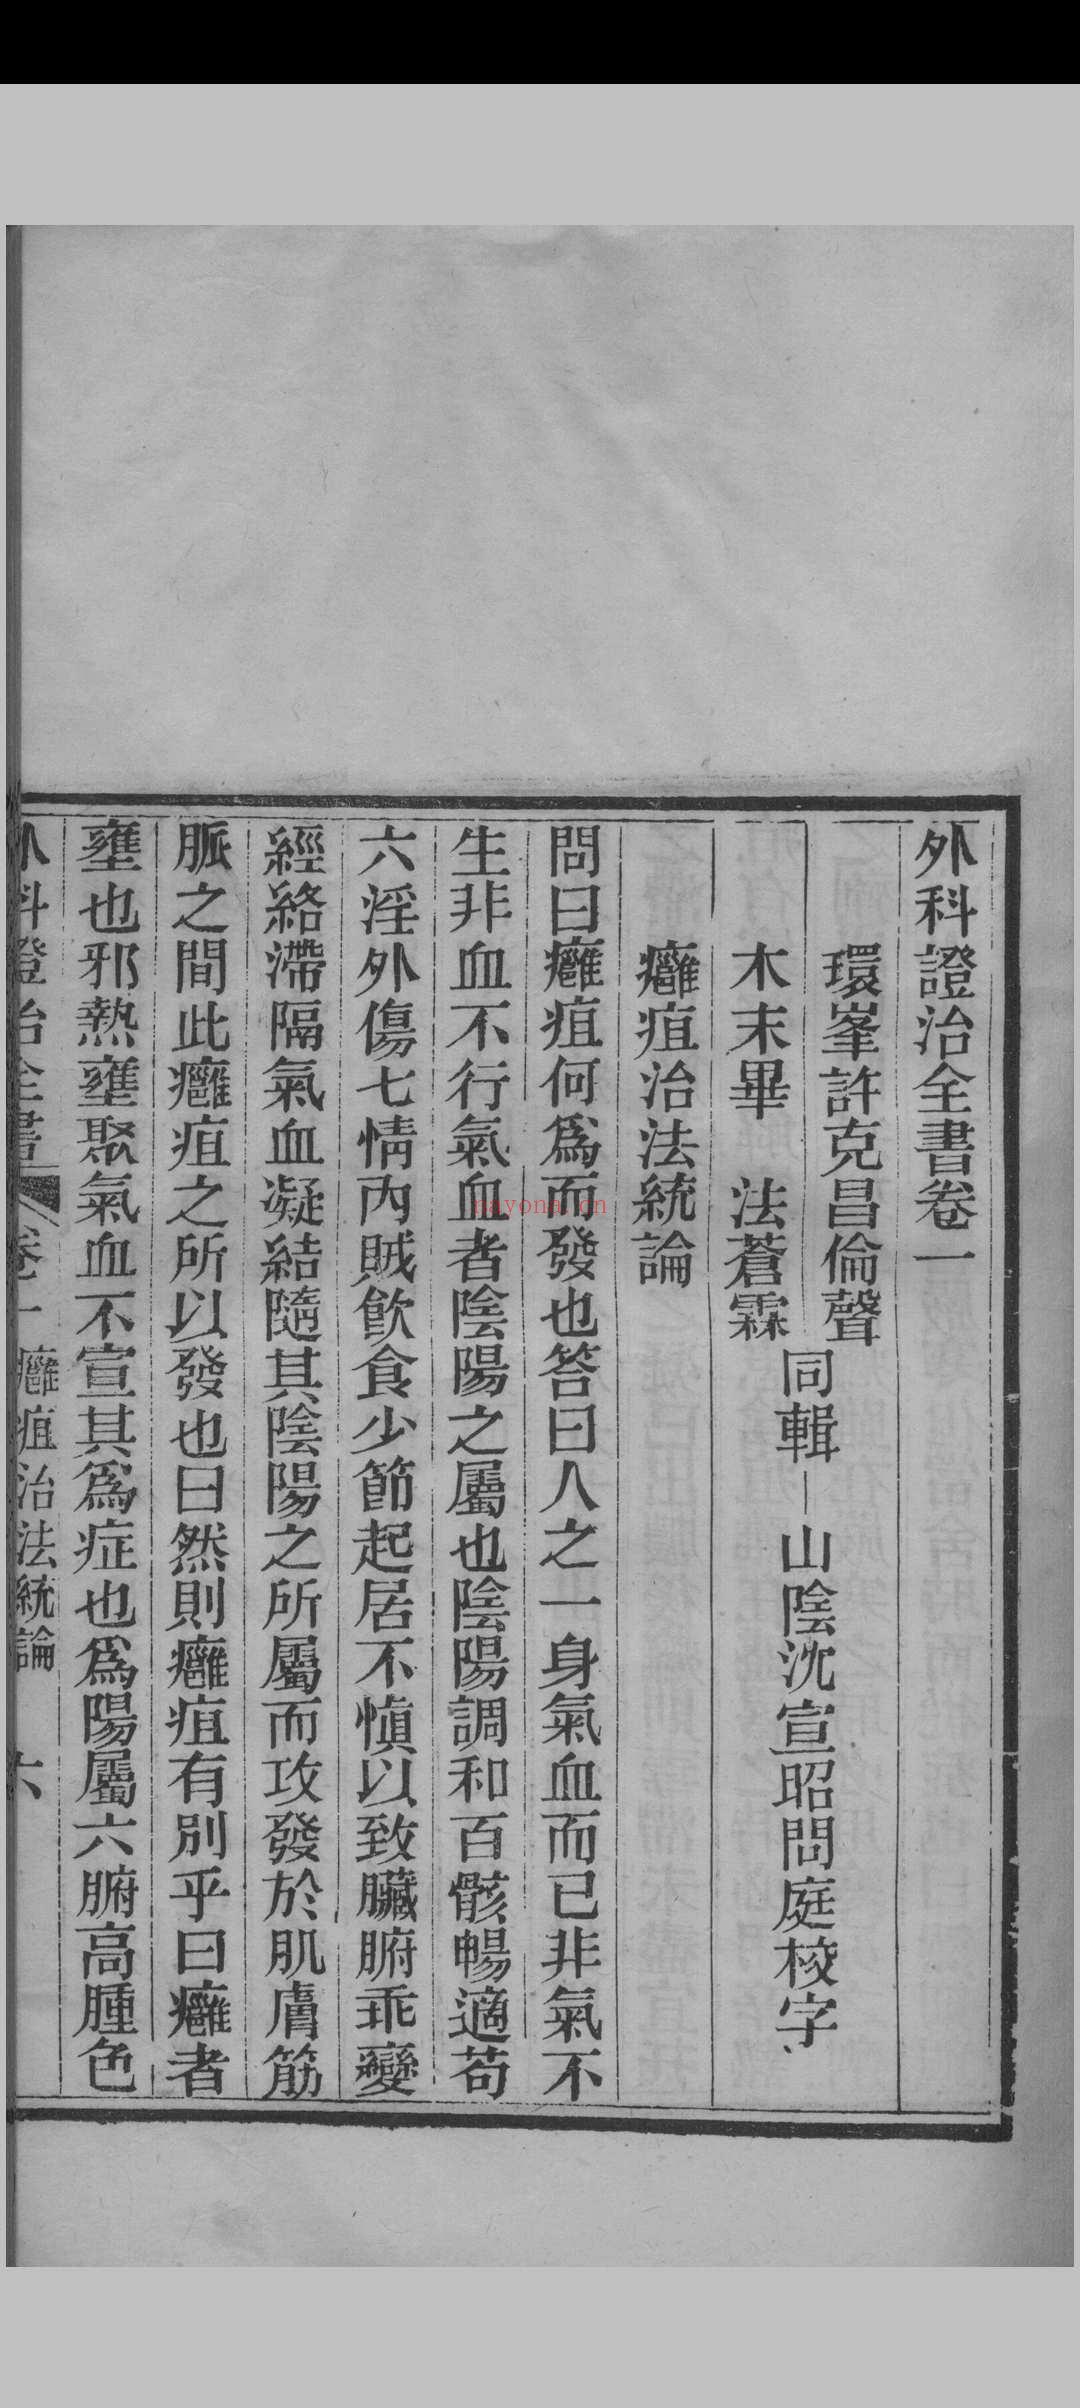 外科證治全書卷一
環峯許克昌倫聲
木末畢　法蒼霖
同輯 山陰沈宣昭問庭校字
癰疽治法統論
問曰癰疽何爲而發也答曰人之一身氣血而已非氣不
生非血不行氣血者陰陽之屬也陰陽調和百骸暢適苟
六淫外傷七情內賊飲食少節起居不愼以致臟腑乖變
經絡滯隔氣血凝結隨其陰陽之所屬而攻發於肌膚筋
脈之間此癰疽之所以發也曰然則癰疽有別乎曰癰者
壅也邪熱壅聚氣血不宣其爲症也爲陽屬六腑高腫色
外科證治全書 卷一 癰疽治法統論 六
nayona.cn